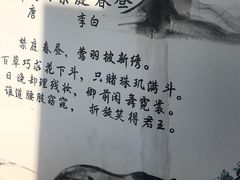 禁庭春昼
唐 李白
禁庭春昼，莺羽披新绣。
百草巧求花下斗，只赌珠玑满斗。
日晚却理残妆，御前闲舞霓裳。
谁道腰肢窈窕，折旋笑得君王。